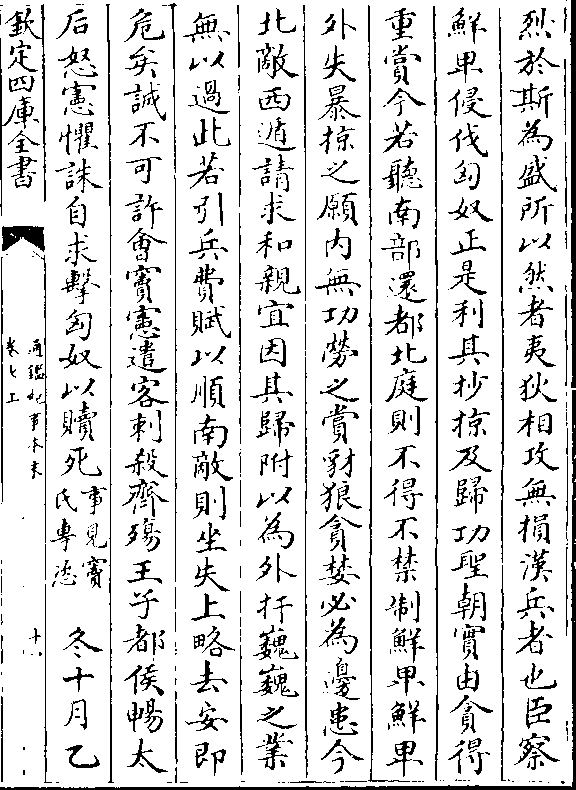 烈於斯為盛所以然者夷狄相攻無損漢兵者也臣察
鮮卑侵伐匈奴正是利其抄掠及歸功聖朝實由貪得
重賞今若聽南部還都北庭則不得不禁制鮮卑鮮卑
外失暴掠之願內無功勞之賞豺狼貪婪必為邊患今
北敵西遁請求和親宜因其歸附以為外扞巍巍之業
無以過此若引兵費賦以順南敵則坐失上略去安即
危矣誠不可許會竇憲遣客刺殺齊殤王子都侯暢太
后怒憲懼誅自求擊匈奴以贖死事見竇氏專恣 冬十月乙
欽定四庫全書
通鑑紀事本末
卷七上